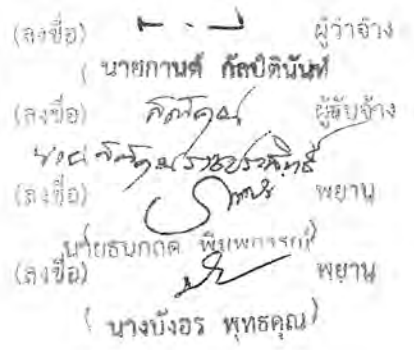 (ลงชื่อ) ผู้ว่าจ้าง
( นายกานต์ กัลป์ตินันท์
(ลงชื่อ) ผู้รับจ้าง
นาย
(ลงชื่อ) พยาน
นายธนกฤต พิมพการณ์)
(ลงชื่อ) พยาน
( นางบังอร พุทธคุณ)